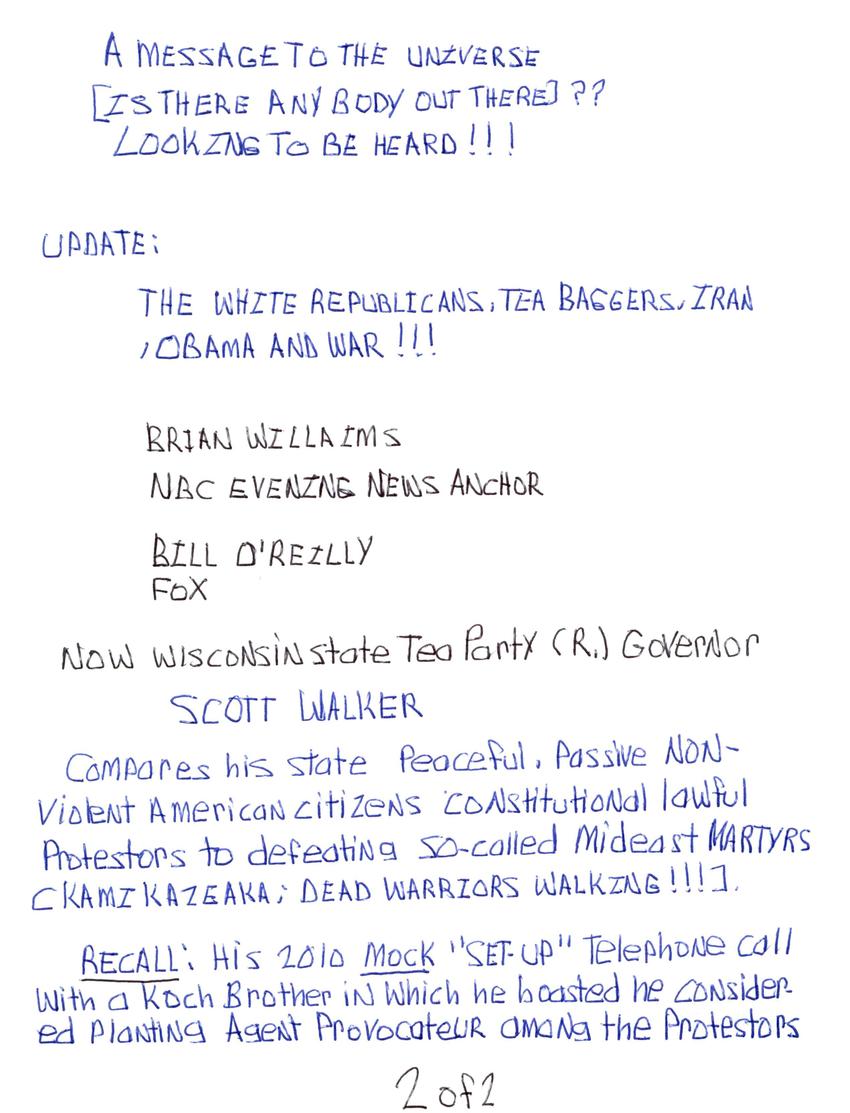 A MESSAGE TO THE UNIVERSE
[IS THERE ANY BODY OUT THERE] ??
LOOKING TO BE HEARD !!!
UPDATE:
THE WHITE REPUBLICANS, TEA BAGGERS, IRAN
, OBAMA AND WAR !!!
BRIAN WILLAIMS
NBC EVENING NEWS ANCHOR
BILL O'REILLY
FOX
NOW WISCONSIN state Tea Party (R.) Governor
SCOTT WALKER
Compares his state Peaceful, Passive NON-
Violent American citizens constitutional lawful
Protestors to defeating so-called Mideast MARTYRS
[KAMIKAZE AKA; DEAD WARRIORS WALKING !!!].
RECALL: His 2010 Mock "SET-UP" Telephone call
With a Koch Brother in Which he boasted he consider-
ed planting Agent Provocateur among the Protestors
2 of 2